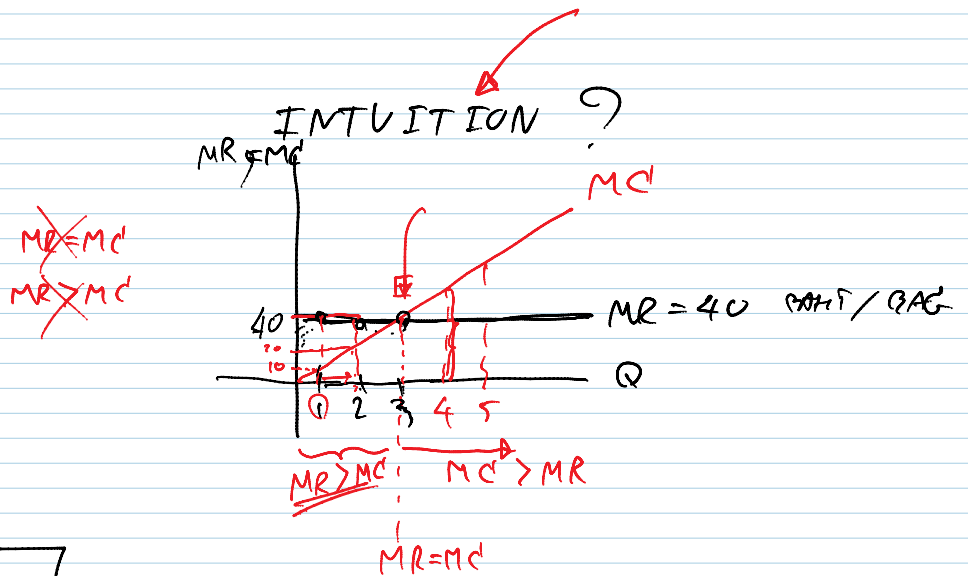 INTUITION ?
MR, MC
MC
MR=MC
MR>MC
40
MR = 40 BAHT / BAG
20
10
Q
1 2 3 4 5
MR>MC
MC > MR
MR=MC